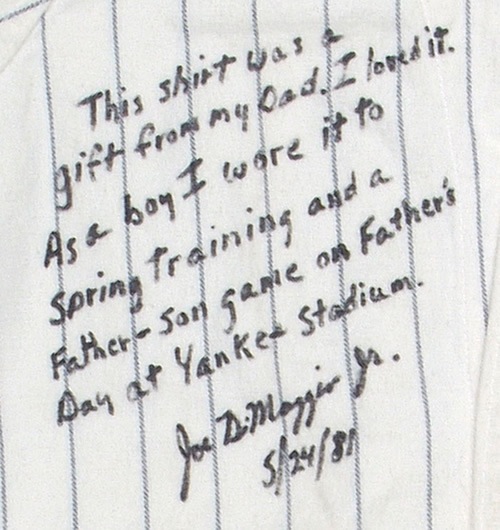 This shirt was a
gift from my Dad. I loved it.
As a boy I wore it to
Spring Training and a
Father-Son game on Father's
Day at Yankee Stadium.
Joe DiMaggio Jr.
5/24/81